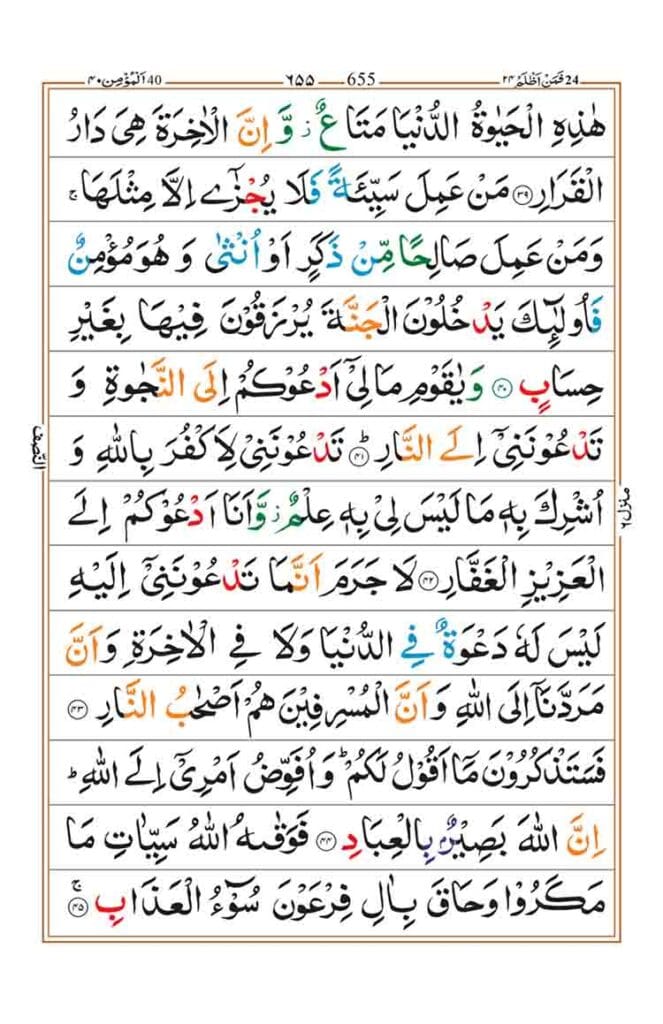 24 فَمَنْ اَظْلَمُ ۲۴ 655 ۶۵۵ 40 اَلْمُؤْمِن ۴۰
هٰذِهِ الْحَيٰوةُ الدُّنْيَا مَتَاعٌ ز وَّ اِنَّ الْاٰخِرَةَ هِىَ دَارُ
الْقَرَارِ ۳۹ مَنْ عَمِلَ سَيِّئَةً فَلَا يُجْزٰٓى اِلَّا مِثْلَهَا ج
وَمَنْ عَمِلَ صَالِحًا مِّنْ ذَكَرٍ اَوْ اُنْثٰى وَ هُوَ مُؤْمِنٌ
فَاُولٰٓئِكَ يَدْخُلُوْنَ الْجَنَّةَ يُرْزَقُوْنَ فِيْهَا بِغَيْرِ
حِسَابٍ ۴۰ وَيٰقَوْمِ مَا لِىْٓ اَدْعُوْكُمْ اِلَى النَّجٰوةِ وَ
تَدْعُوْنَنِىْٓ اِلَى النَّارِ ط ۴۱ تَدْعُوْنَنِىْ لِاَكْفُرَ بِاللّٰهِ وَ
النّصف
اُشْرِكَ بِهٖ مَا لَيْسَ لِىْ بِهٖ عِلْمٌ ز وَّاَنَا اَدْعُوْكُمْ اِلَى
منزل ۶
الْعَزِيْزِ الْغَفَّارِ ۴۲ لَا جَرَمَ اَنَّمَا تَدْعُوْنَنِىْٓ اِلَيْهِ
لَيْسَ لَهٗ دَعْوَةٌ فِى الدُّنْيَا وَلَا فِى الْاٰخِرَةِ وَاَنَّ
مَرَدَّنَآ اِلَى اللّٰهِ وَاَنَّ الْمُسْرِفِيْنَ هُمْ اَصْحٰبُ النَّارِ ۴۳
فَسَتَذْكُرُوْنَ مَآ اَقُوْلُ لَكُمْ ط وَاُفَوِّضُ اَمْرِىْٓ اِلَى اللّٰهِ ط
اِنَّ اللّٰهَ بَصِيْرٌۢ بِالْعِبَادِ ۴۴ فَوَقٰىهُ اللّٰهُ سَيِّاٰتِ مَا
مَكَرُوْا وَحَاقَ بِاٰلِ فِرْعَوْنَ سُوْٓءُ الْعَذَابِ ج ۴۵